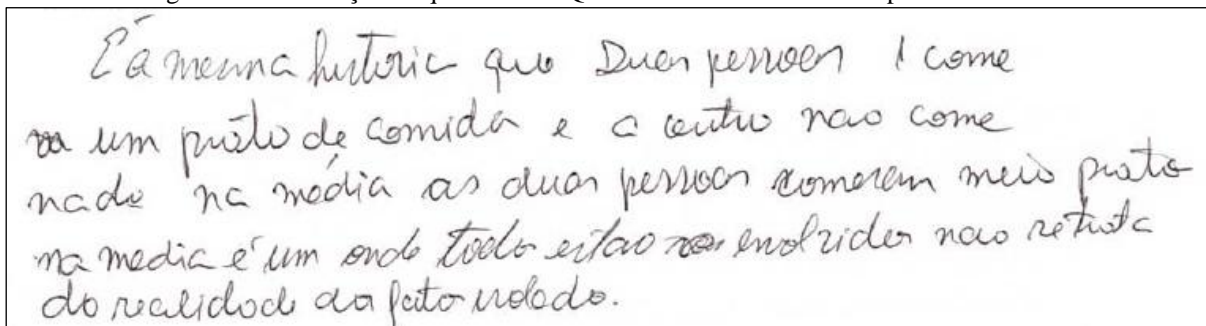 É a mesma historia que Duas pessoas 1 come
um prato de comida e a outro nao come
nada na média as duas pessoas comeram meio prato
na media é um onde todo estao envolvidos nao retrata
do realidade do fato isolado.